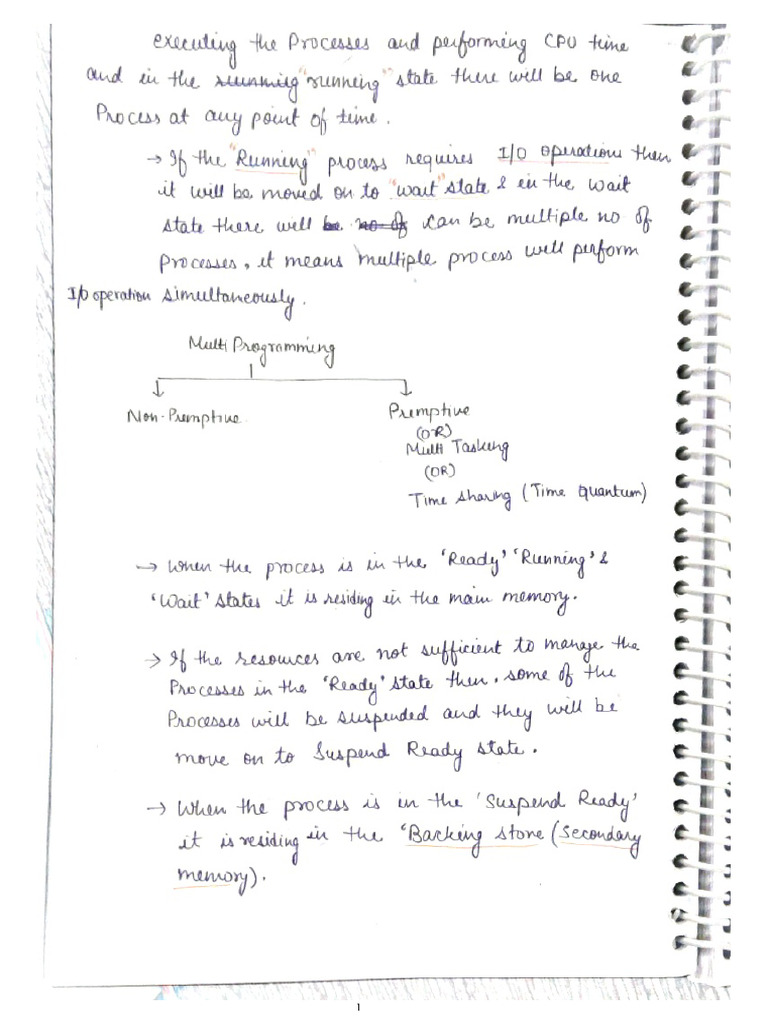 executing the Processes and performing CPU time
and in the running "running" state there will be one
Process at any point of time.
→ If the "Running" process requires I/O operation then
it will be moved on to "wait" state & in the wait
state there will be no of can be multiple no of
processes, it means multiple process will perform
I/O operation simultaneously.
Multi Programming
Non-Premptive
Premptive
(OR)
Multi Tasking
(OR)
Time sharing (Time quantum)
→ When the process is in the 'Ready' 'Running' &
'Wait' states it is residing in the main memory.
→ If the resources are not sufficient to manage the
Processes in the 'Ready' state then, some of the
Processes will be suspended and they will be
move on to Suspend Ready state.
→ When the process is in the 'Suspend Ready'
it is residing in the 'Backing store (Secondary
memory).
1